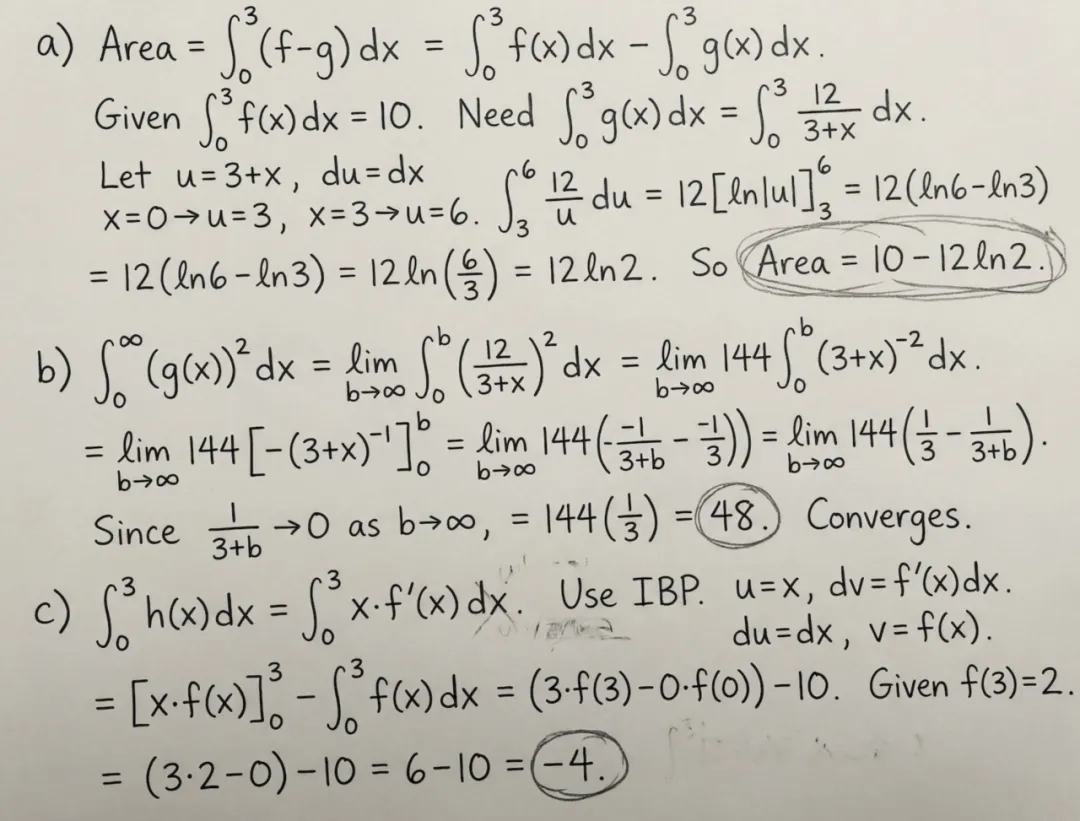 a) Area = ∫₀³(f-g) dx = ∫₀³ f(x) dx - ∫₀³ g(x) dx.
Given ∫₀³ f(x) dx = 10. Need ∫₀³ g(x) dx = ∫₀³ 12/(3+x) dx.
Let u=3+x, du=dx
x=0→u=3, x=3→u=6. ∫₃⁶ 12/u du = 12[ln|u|]₃⁶ = 12(ln6-ln3)
= 12(ln6-ln3) = 12 ln(6/3) = 12 ln2. So Area = 10-12 ln2.
b) ∫₀^∞ (g(x))² dx = lim b→∞ ∫₀ᵇ (12/(3+x))² dx = lim b→∞ 144 ∫₀ᵇ (3+x)⁻² dx.
= lim b→∞ 144[-(3+x)⁻¹]₀ᵇ = lim b→∞ 144(- -1/(3+b) - -1/3)) = lim b→∞ 144(1/3 - 1/(3+b)).
Since 1/(3+b) → 0 as b→∞, = 144(1/3) = 48. Converges.
c) ∫₀³ h(x) dx = ∫₀³ x·f'(x) dx. Use IBP. u=x, dv=f'(x)dx.
du=dx, v=f(x).
= [x·f(x)]₀³ - ∫₀³ f(x) dx = (3·f(3)-0·f(0))-10. Given f(3)=2.
= (3·2-0)-10 = 6-10 = -4.